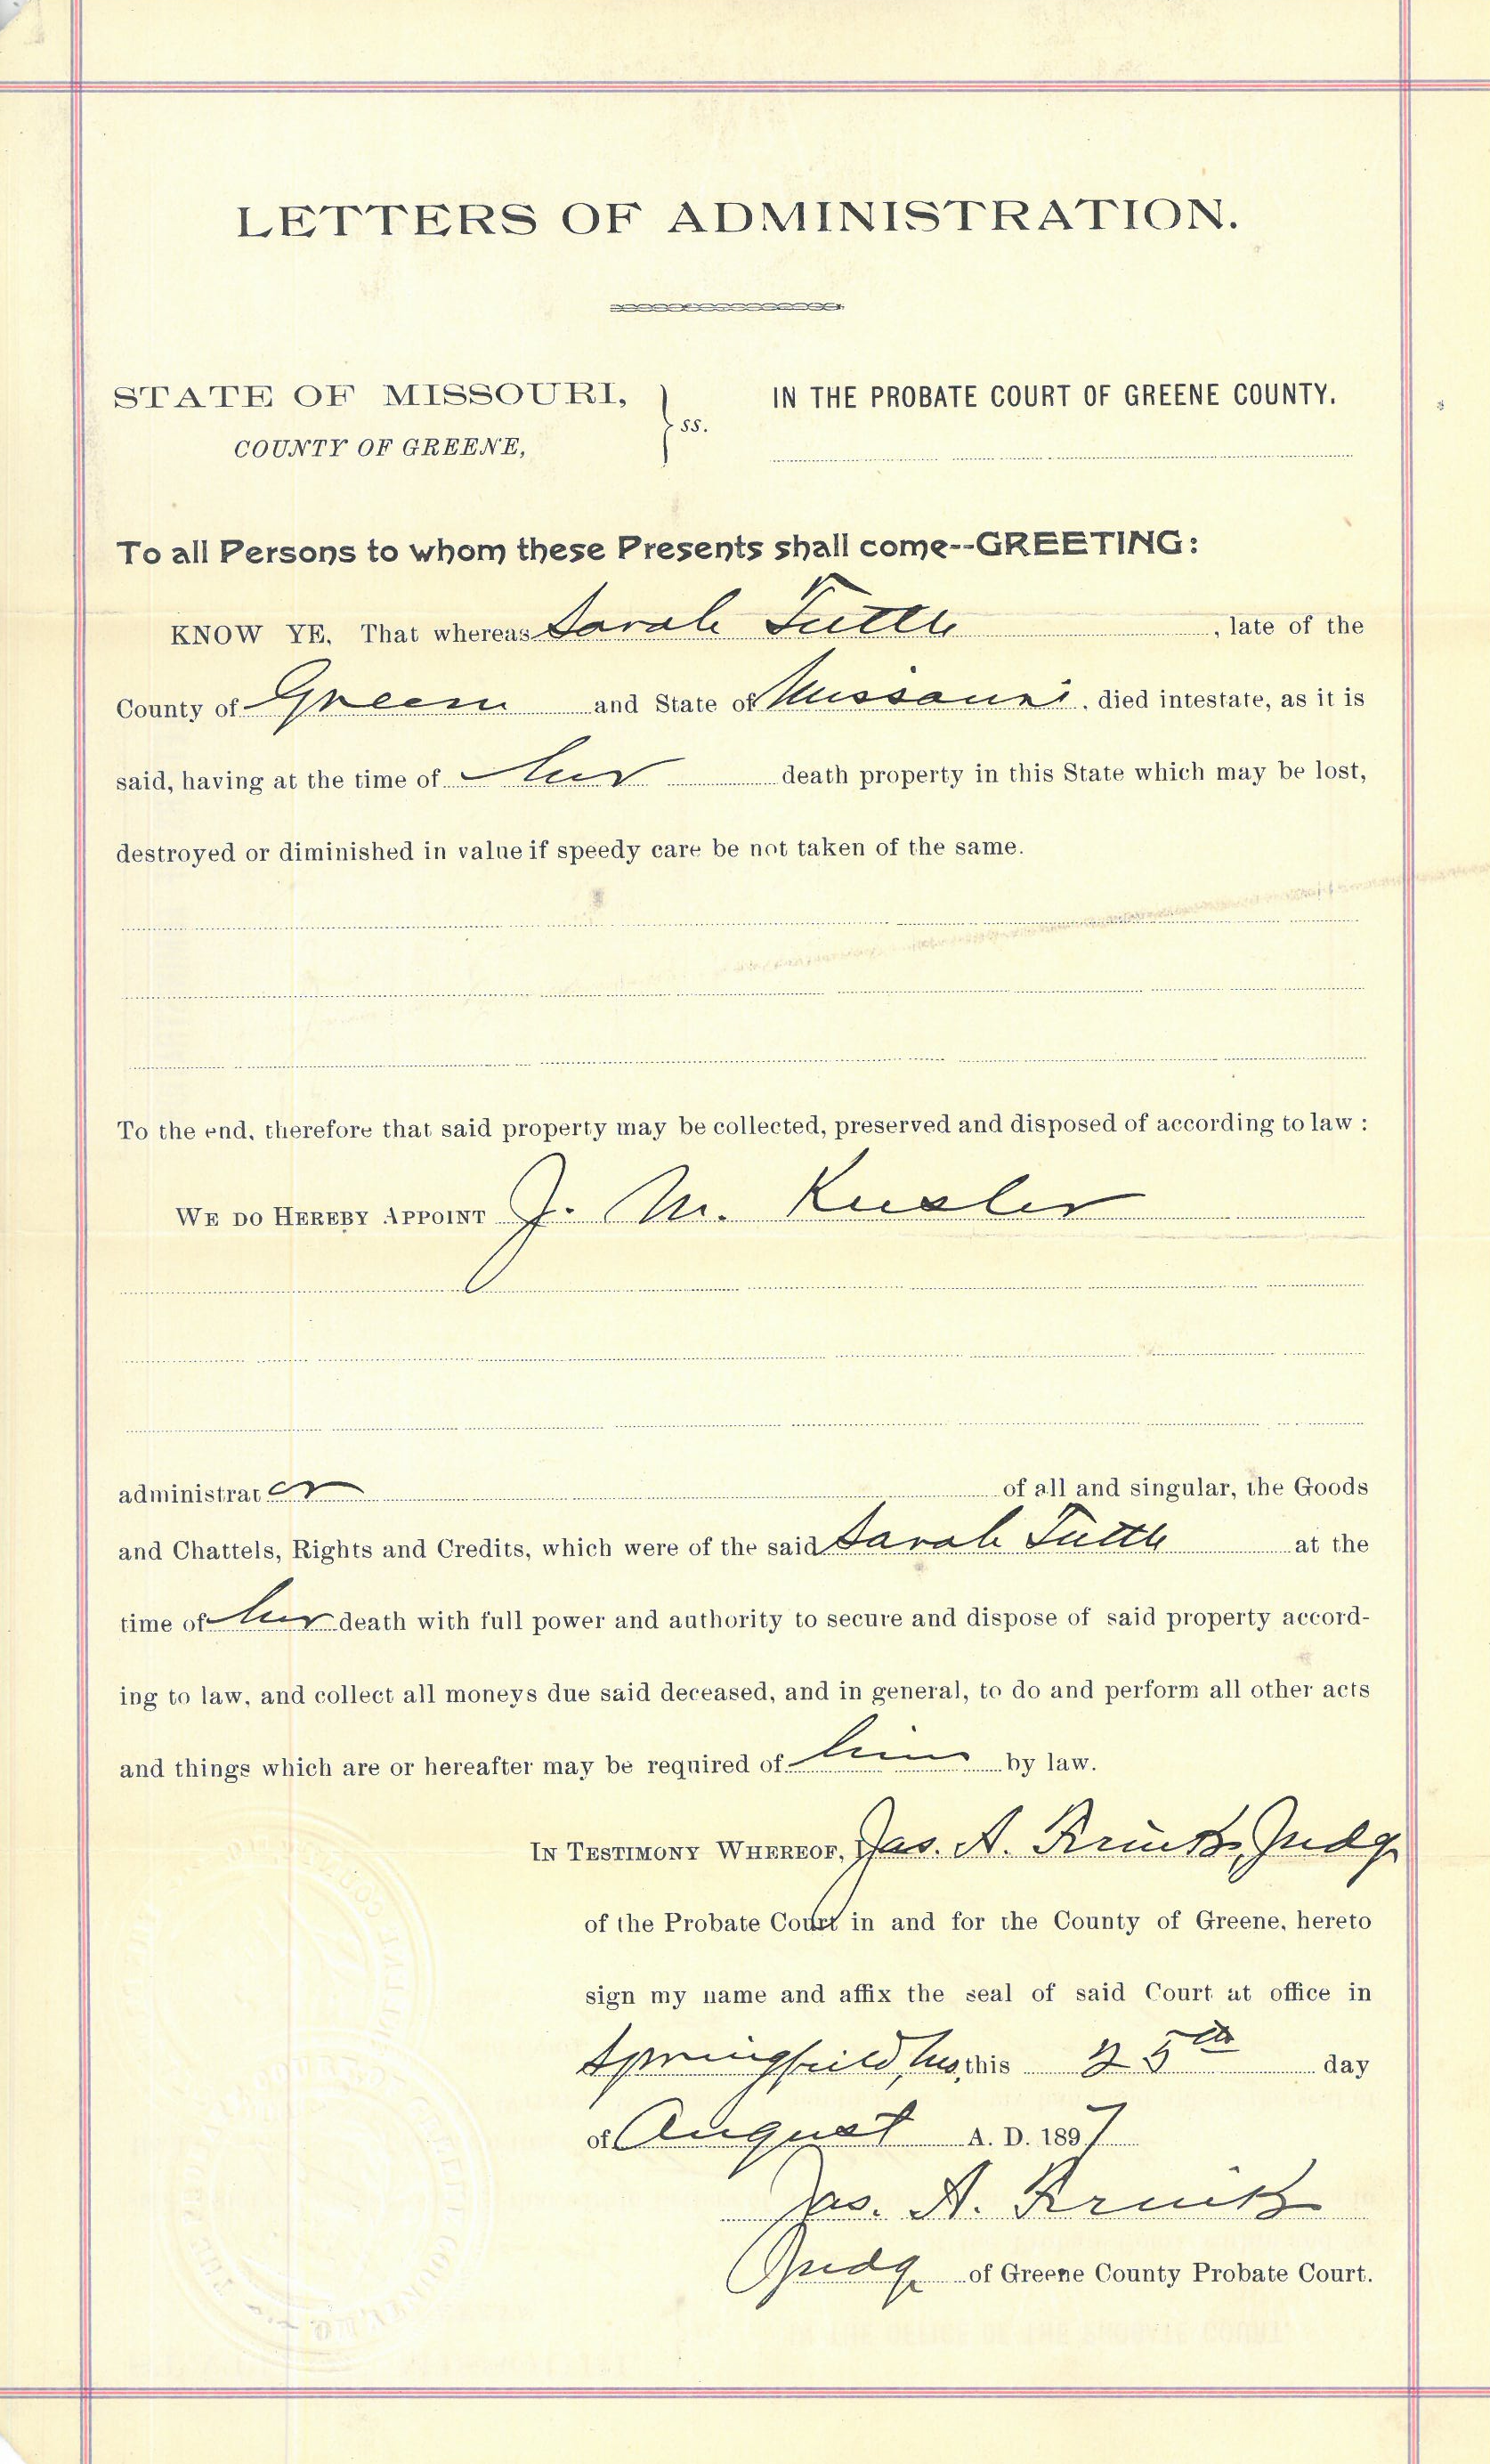 LETTERS OF ADMINISTRATION.
STATE OF MISSOURI, IN THE PROBATE COURT OF GREENE COUNTY.
COUNTY OF GREENE, ss.
To all Persons to whom these Presents shall come--GREETING:
KNOW YE, That whereas Sarah Tuttle, late of the
County of Greene and State of Missouri, died intestate, as it is
said, having at the time of her death property in this State which may be lost,
destroyed or diminished in value if speedy care be not taken of the same.
To the end, therefore that said property may be collected, preserved and disposed of according to law :
WE DO HEREBY APPOINT J. M. Kesler
administrator of all and singular, the Goods
and Chattels, Rights and Credits, which were of the said Sarah Tuttle at the
time of her death with full power and authority to secure and dispose of said property accord-
ing to law, and collect all moneys due said deceased, and in general, to do and perform all other acts
and things which are or hereafter may be required of him by law.
IN TESTIMONY WHEREOF, I Jas. A. Judge
of the Probate Court in and for the County of Greene, hereto
sign my name and affix the seal of said Court at office in
Springfield, Mo, this 25th day
of August A. D. 1897
Jas. A.
Judge of Greene County Probate Court.